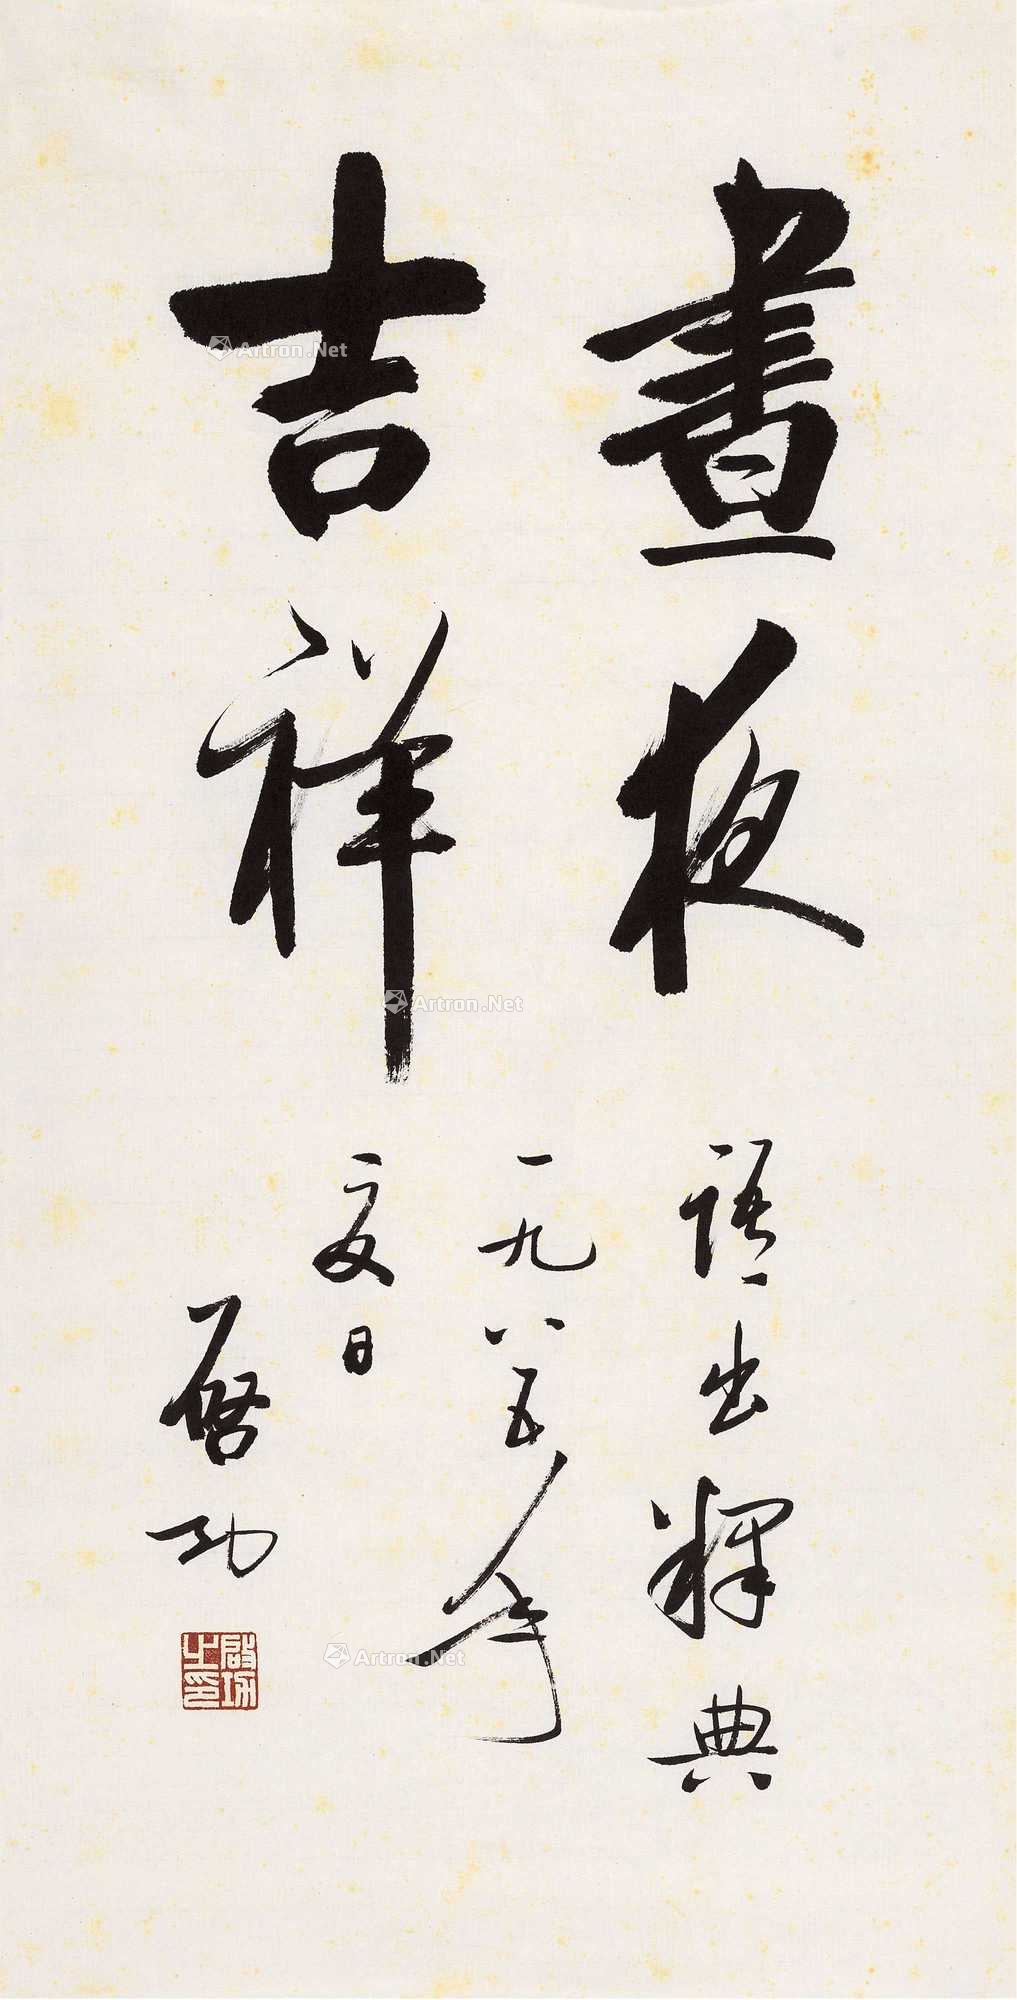 晝夜
吉祥
語出釋典
一九八五年
夏日
啓功
啟功之印
Artron.Net
Artron.Net
Artron.Net